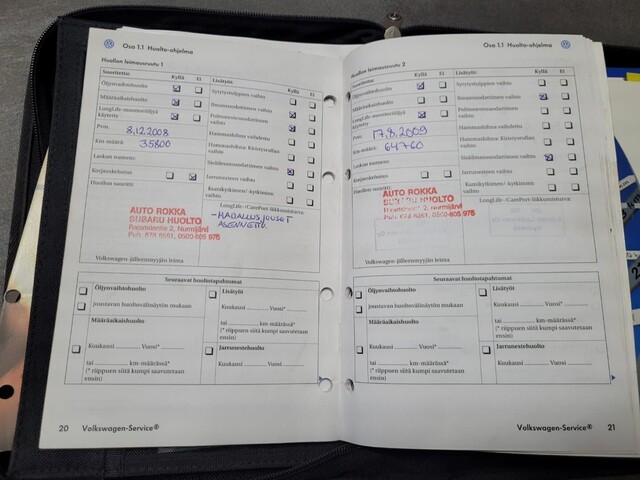 Osa 1.1 Huolto-ohjelma
Huollon leimausruutu 1
Suoritettu: Kyllä Ei Lisätyöt: Kyllä Ei
Öljynvaihtohuolto
Sytytystulppien vaihto
Määräaikaishuolto
Ilmansuodattimen vaihto
LongLife-moottoriöljyä käytetty
Polttoainesuodattimen vaihto
Pvm. 8.12.2008
Hammashihna vaihdettu
Km-määrä: 35800
Hammashihnan Kiristysrullan vaihto
Laskun numero:
Sisäilmansuodattimen vaihto
Korjauskehotus
Jarrunesteen vaihto
Huollon suoritti:
Kumikytkimen/ kytkimen vaihto
LongLife-/CarePort-liikkumisturva:
AUTO ROKKA
SUBARU HUOLTO
2, Nurmijärvi
Puh. 878 6561, 0500-805 975
- MADALLUSJOUSET
ASENNETTU
Volkswagen-jälleenmyyjän leima
Seuraavat huoltotapahtumat
Öljynvaihtohuolto
joustavan huoltovälinäytön mukaan
Määräaikaishuolto
Kuukausi ........... Vuosi ...........
tai ........... km-määrässä*
(* riippuen siitä kumpi saavutetaan
ensin)
Lisätyöt
Kuukausi ........... Vuosi* ...........
tai ........... km-määrässä
(* riippuen siitä kumpi saavutetaan
ensin)
Jarrunestehuolto
Kuukausi ........... Vuosi ...........
20 Volkswagen-Service®
Osa 1.1 Huolto-ohjelma
Huollon leimausruutu 2
Suoritettu: Kyllä Ei Lisätyöt: Kyllä Ei
Öljynvaihtohuolto
Sytytystulppien vaihto
Määräaikaishuolto
Ilmansuodattimen vaihto
LongLife-moottoriöljyä käytetty
Polttoainesuodattimen vaihto
Pvm. 17.8.2009
Hammashihna vaihdettu
Km-määrä: 64760
Hammashihnan Kiristysrullan vaihto
Laskun numero:
Sisäilmansuodattimen vaihto
Korjauskehotus
Jarrunesteen vaihto
Huollon suoritti:
Kumikytkimen/ kytkimen vaihto
LongLife-/CarePort-liikkumisturva:
AUTO ROKKA
HUOLTO
2, Nurmijärvi
Puh. 878 6561, 0500-805 975
Volkswagen-jälleenmyyjän leima
Seuraavat huoltotapahtumat
Öljynvaihtohuolto
joustavan huoltovälinäytön mukaan
Määräaikaishuolto
Kuukausi ........... Vuosi* ...........
tai ........... km-määrässä*
(* riippuen siitä kumpi saavutetaan
ensin)
Lisätyöt
Kuukausi ........... Vuosi* ...........
tai ........... km-määrässä
(* riippuen siitä kumpi saavutetaan
ensin)
Jarrunestehuolto
Kuukausi ........... Vuosi ...........
Volkswagen-Service® 21